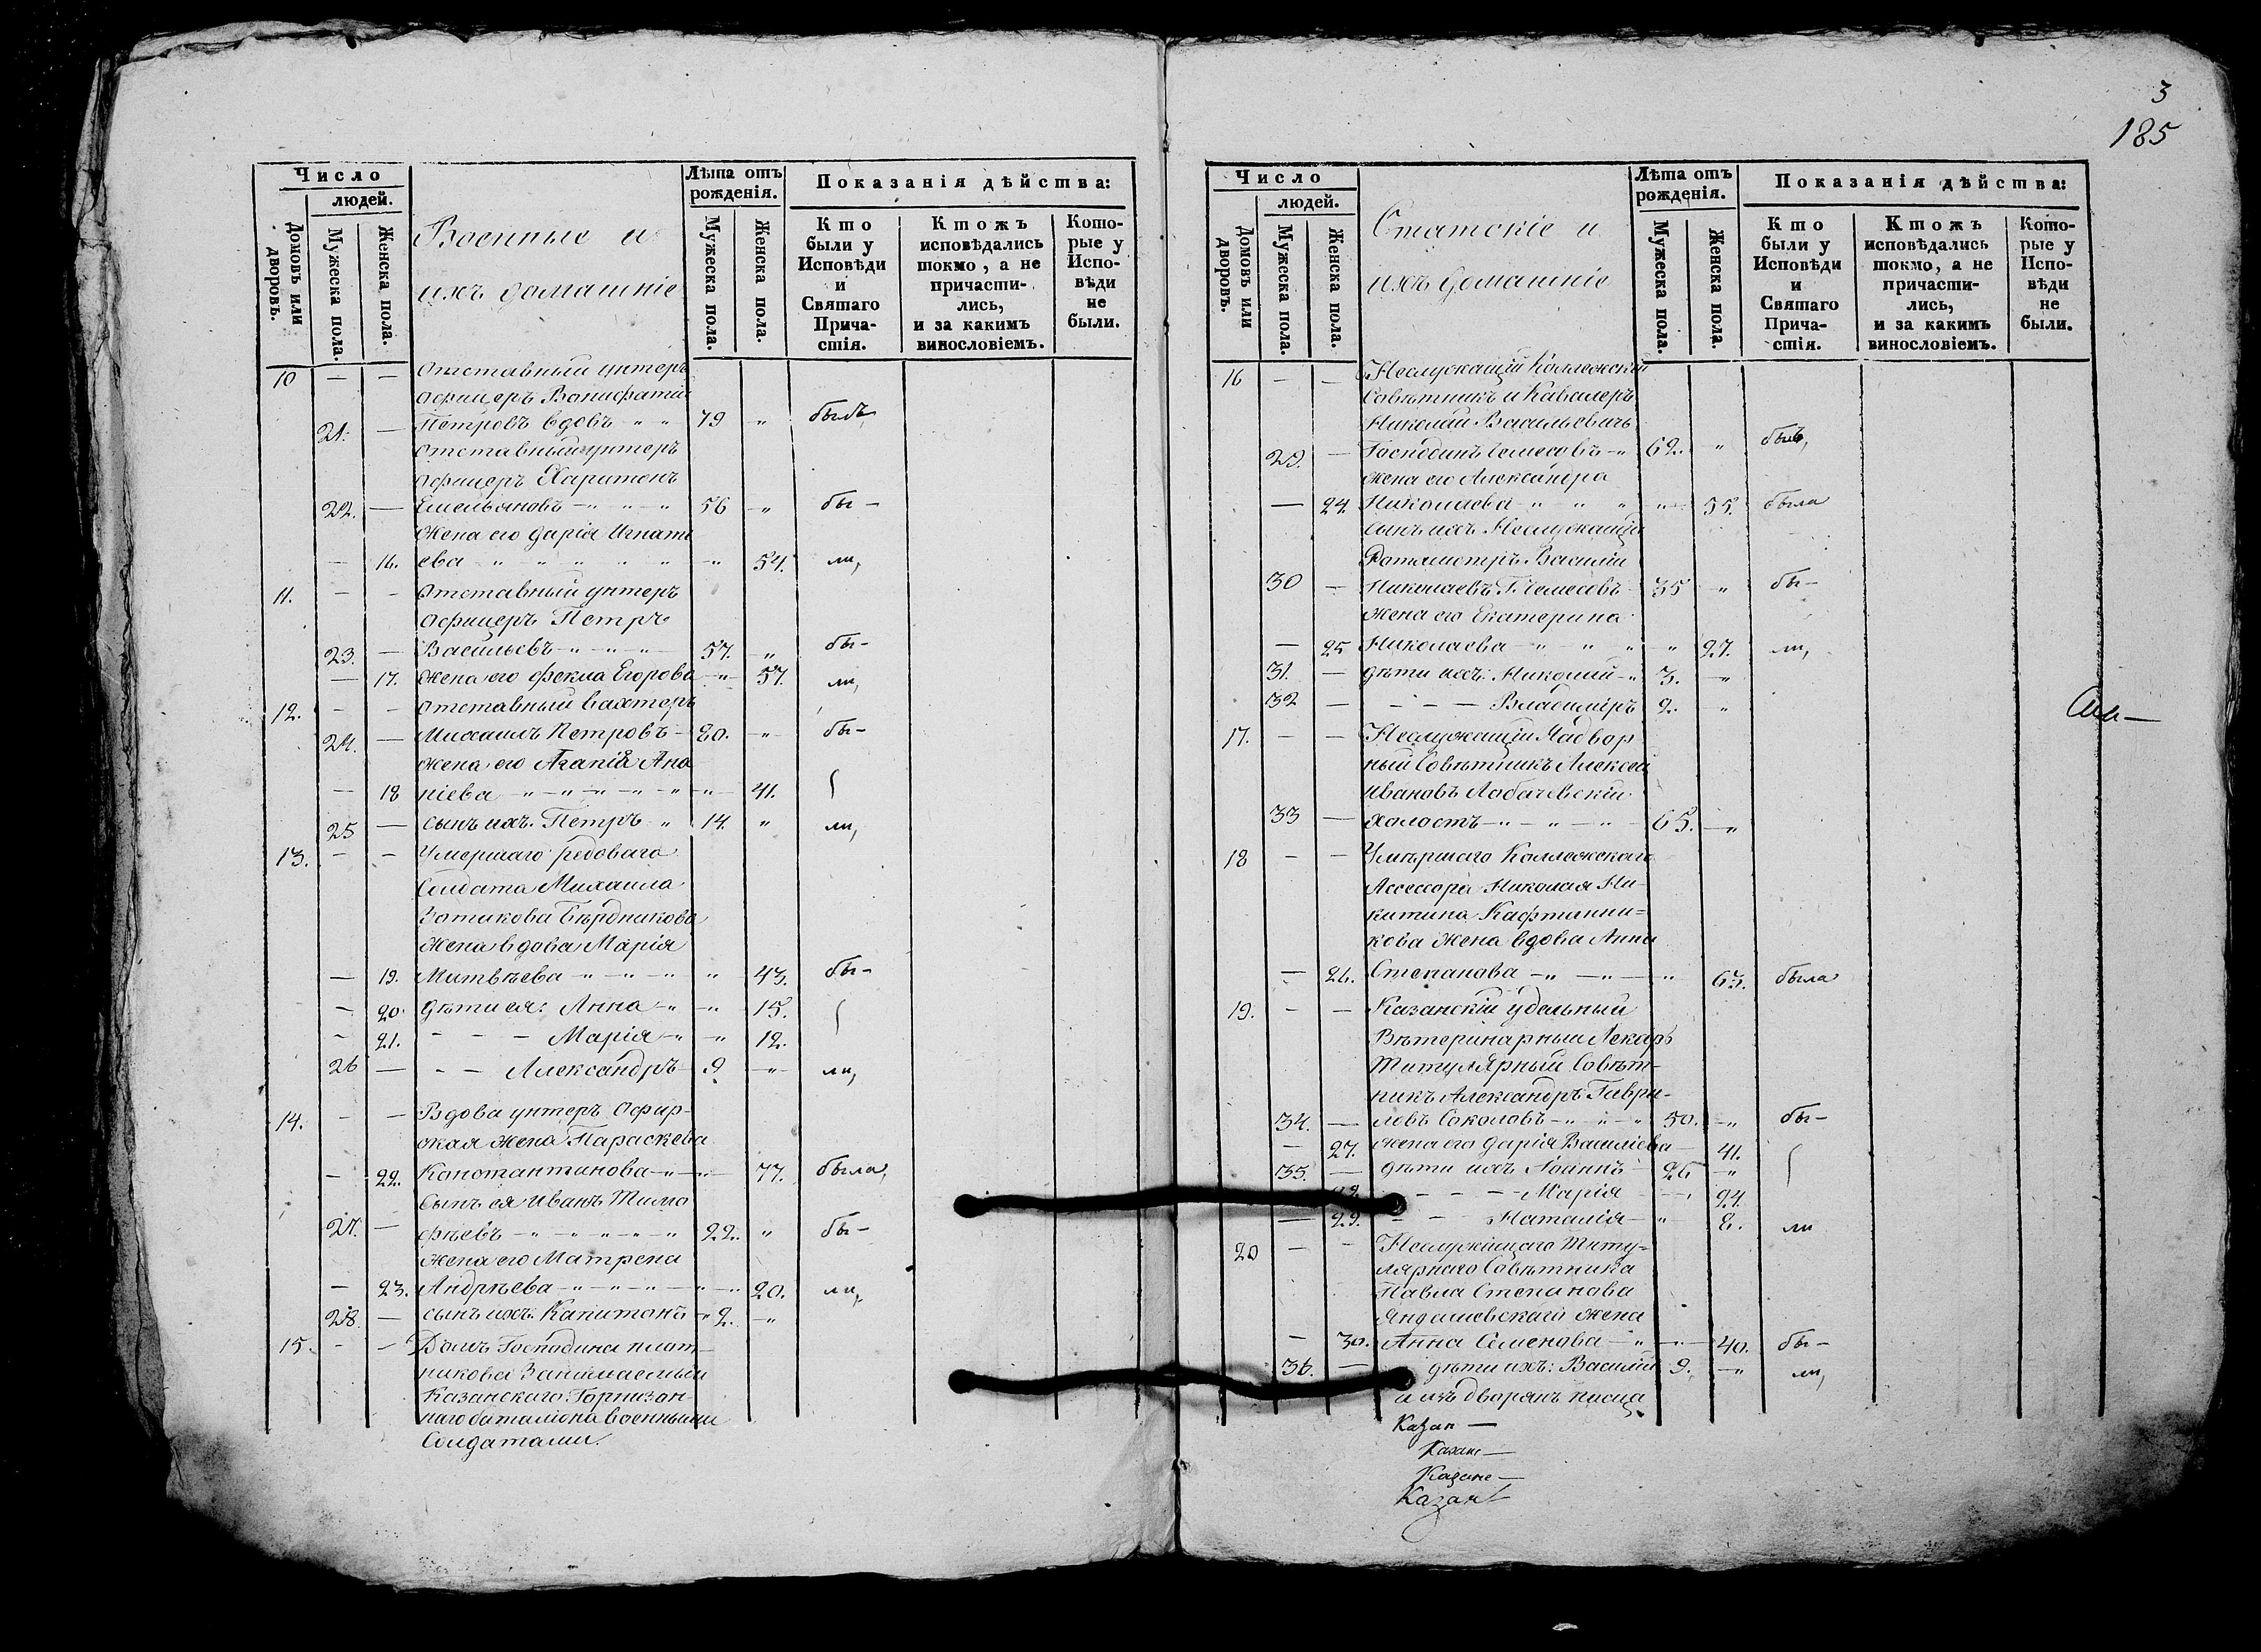 Число
людей.
Домовъ или дворовъ.
Мужеска пола.
Женска пола.
Военные и
ихъ домашніе
Лѣта отъ рожденія.
Мужеска пола.
Женска пола.
Показанія дѣйства:
Кто были у Исповѣди и Святаго Причастія.
Ктожъ исповѣдались токмо, а не причастились, и за какимъ винословіемъ.
Которые у Исповѣди не были.
10 — — Отставный унтеръ
офицеръ Вонифатій
21. — Петровъ вдовъ 79 " былъ,
Отставный унтеръ
офицеръ Харитонъ
22. — Емельяновъ 56 " бы-
Жена его Дарія Игнать
— 16. ева " 54. ли,
11. — — Отставный унтеръ
офицеръ Петръ
23. — Васильевъ 57. " бы-
— 17. Жена его Фекла Егорова " 57. ли,
12. — — Отставный вахтеръ
24. — Михаилъ Петровъ 80. " бы-
жена его Агапія Ана
— 18 ніева " 41.
25 — сынъ ихъ. Петръ 14. " ли,
13. — — Умершаго редоваго
Солдата Михаила
Зотикова Бѣрдникова
Жена вдова Марія
— 19. Матвѣева " 43. бы-
— 20. дѣти ея: Анна " 15.
— 21. — — — Марія " 12.
26 — — — Александръ 9 " ли,
14. — — Вдова унтеръ Офир-
ская жена Параскева
— 22. Константинова " 77. была,
Сынъ ея Иванъ Тимо
27. — фѣевъ 22. " бы-
Жена его Матрена
— 23. Андрѣева " 20. ли,
28. — сынъ ихъ. Капитонъ 2. "
15. — — Домъ Господина плот-
никова Занимаемый
Казанскаго Горнизон-
наго баталіона военными
Солдатами.
3
185
Число
людей.
Домовъ или дворовъ.
Мужеска пола.
Женска пола.
Статскіе и
ихъ домашніе
Лѣта отъ рожденія.
Мужеска пола.
Женска пола.
Показанія дѣйства:
Кто были у Исповѣди и Святаго Причастія.
Ктожъ исповѣдались токмо, а не причастились, и за какимъ винословіемъ.
Которые у Исповѣди не были.
16 — — Неслужащій Коллежскій
Совѣтникъ и Кавалеръ
Николай Васильевичь
29. — Господинъ 62. " былъ,
жена его Александра
— 24. Николаева " 55. была
сынъ ихъ Неслужащій
Ротмистръ Василій
30 — Николаевъ Г. 35 " бы-
Жена его Екатерина
— 25 Николаева " 27. ли,
31. — дѣти ихъ: Николай 3. "
32 — — — — Владиміръ 2. "
17. — — Неслужащій Надвор
ный Совѣтникъ Алексей
Ивановъ Лобачевскій
33 — холостъ 65. "
18 — — Умѣршаго Коллежскаго
Ассессора Николая Ни-
китина Кафтанни=
кова жена вдова Анна
— 26. Степанова " 63. была
19. — — Казанскій удельный
Вѣтеринарный Лекарь
Титулярный Совѣт-
никъ Александръ Гаври-
34. — ловъ Соколовъ 50. " бы-
— 27. жена его Дарія Васильева 41.
35. — дѣти ихъ Іоаннъ 26 "
— — — Марія 24.
— 29. — — Наталія " 8. ли
20 — — Неслужащаго Титу=
лярнаго Совѣтника
Павла Степанова
Яндашевскаго жена
— 30. Анна Семенова " 40. бы-
36. — дѣти ихъ: Василій 9. " ли,
а изъ дворянъ писца
Казан —
Казанс —
Казанс —
Казан